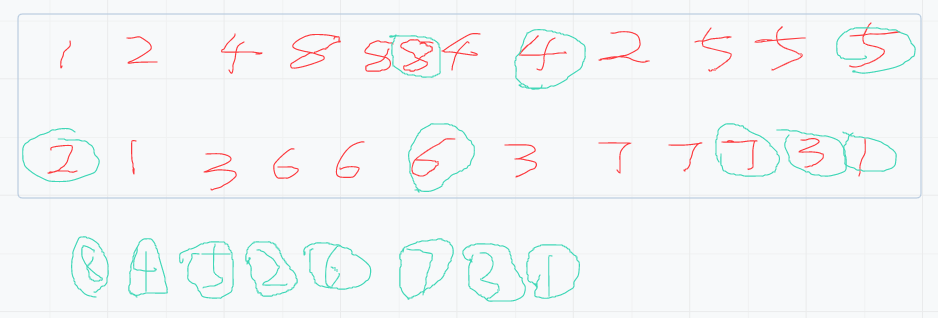 1 2 4 8 8 8 4 4 2 5 5 5
2 1 3 6 6 6 3 7 7 7 3 1
8 4 5 2 6 7 3 1